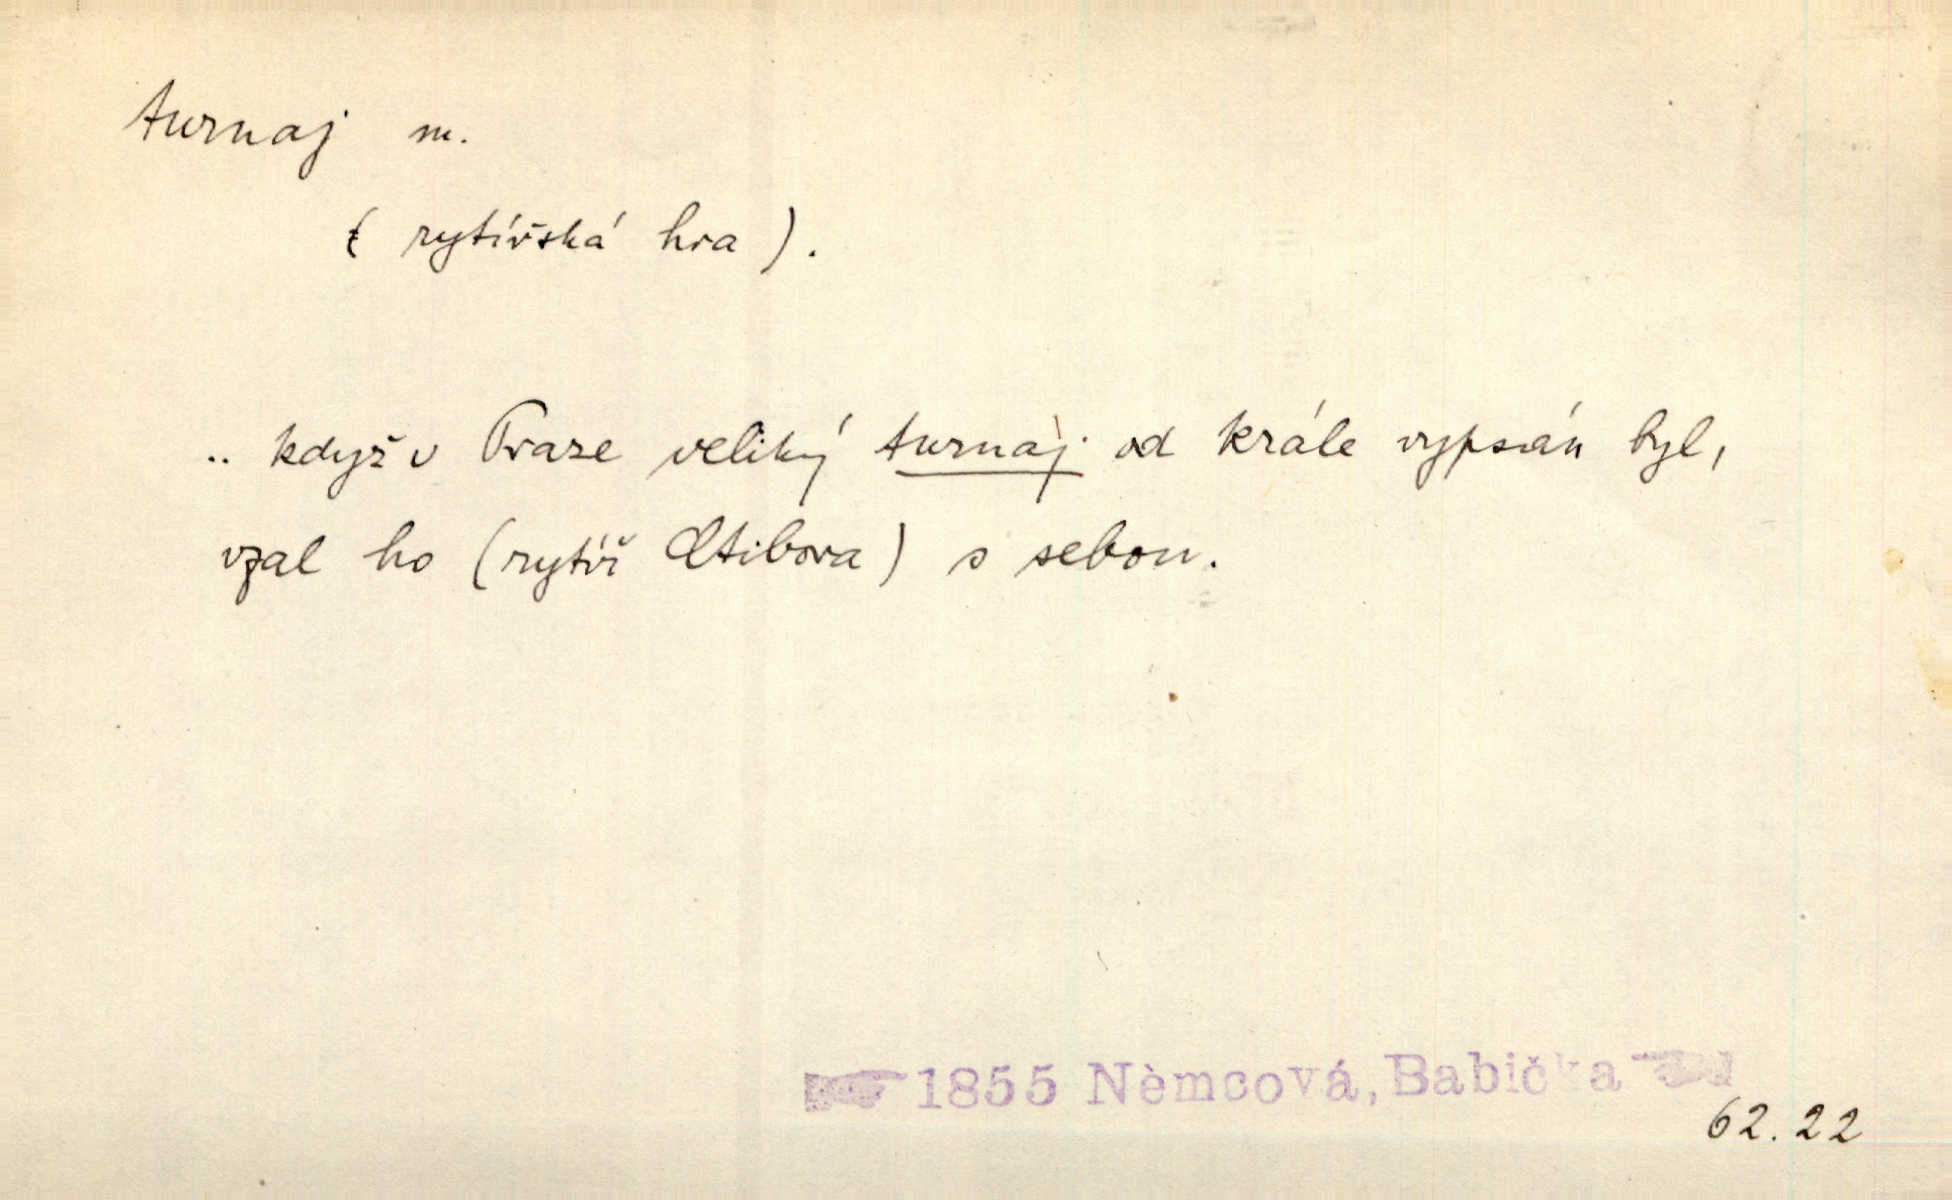 turnaj m.
( rytířská hra ).
.. když v Praze veliký turnaj od krále vypsán byl,
vzal ho (rytíř Ctibora) s sebou.
1855 Němcová, Babička
62.22